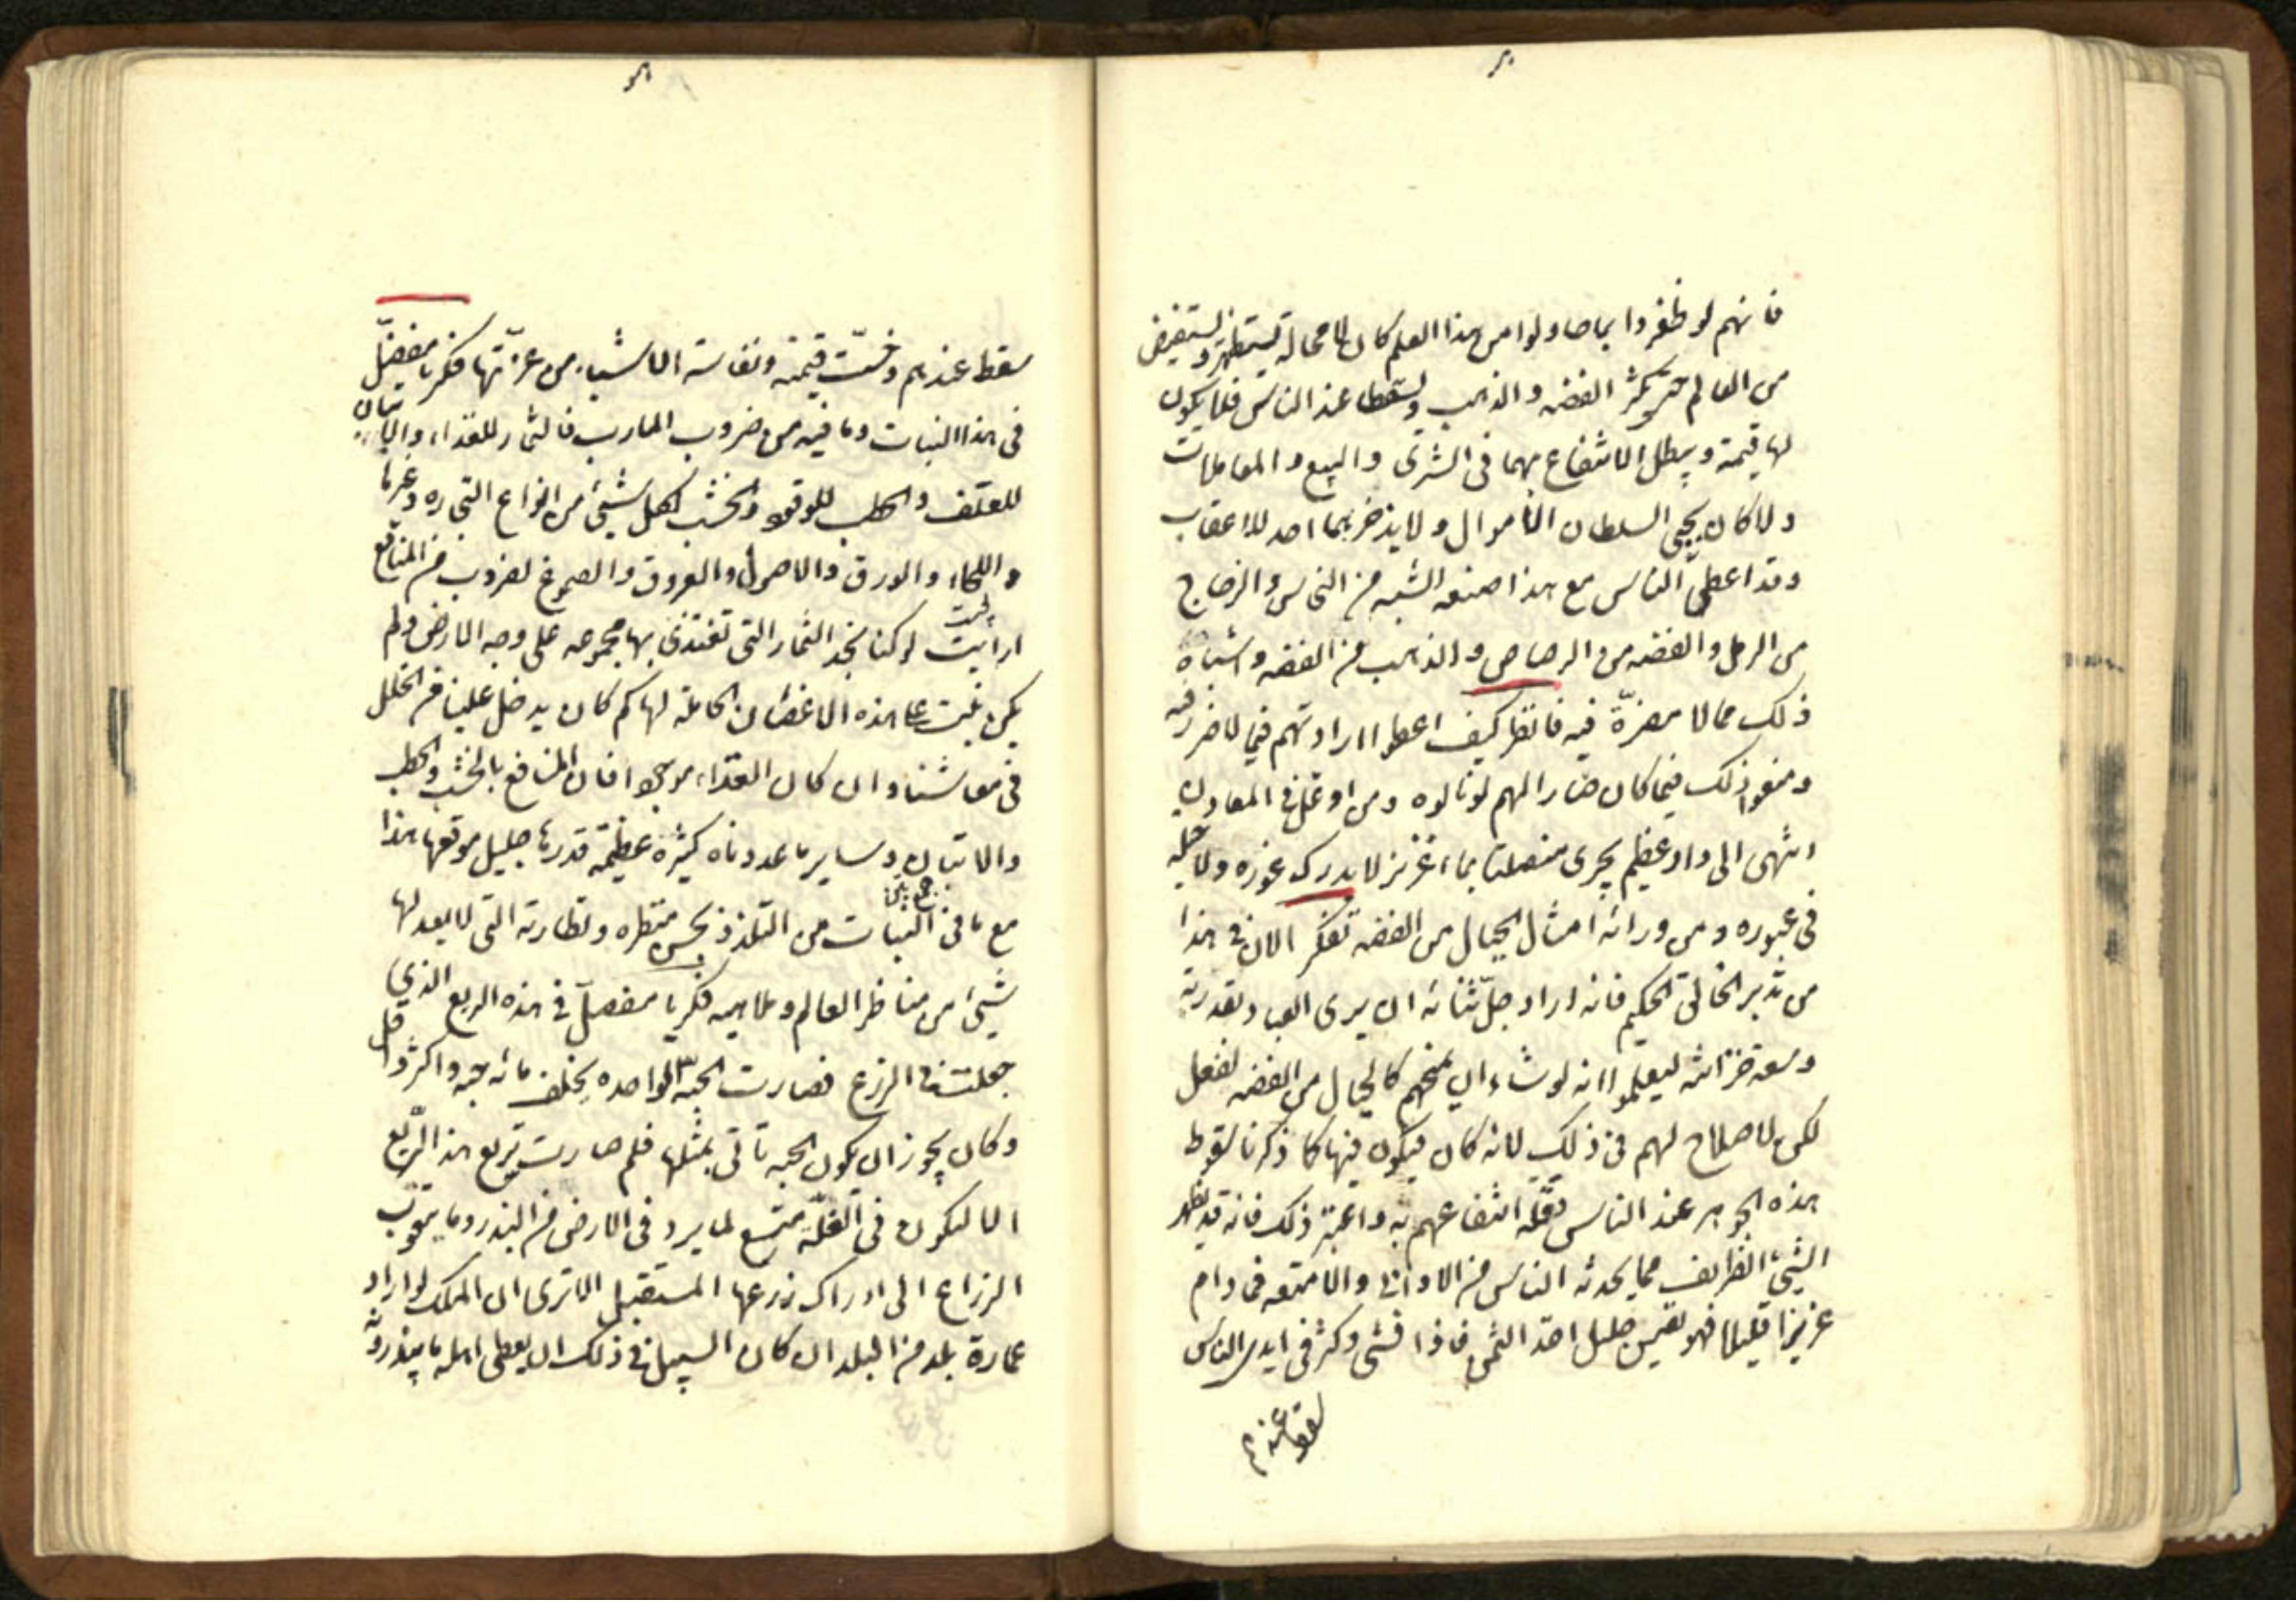 فانهم لو ظفروا بما حاولوا من هذا العلم كان لا محالة سيظهر و يستفيض
من العالم حتى تكثر الفضه و الذهب و يسقطا عند الناس فلا يكون
لها قيمة و يبطل الانتفاع بهما فى الشرى و البيع و المعاملات
و لا كان يجبى السلطان الاموال و لا يدخر بهما احد للاعقاب
و قد اعطى الناس مع هذا صنعه الشبه من النحاس و الزجاج
من الرمل و الفضه من الرصاص و الذهب من الفضه و اشباه
ذلك مما لا مضرّة فيه فانظر كيف اعطوا ارادتهم فيما لا ضرر فيه
و منعوا ذلك فيما كان ضارا لهم لو نالوه و من اوغل فى المعادن
انتهى الى واد عظيم يجرى منصلتا بماء غزير لا يدرك غوره و لا حيله
فى عبوره و من ورائه امثال الجبال من الفضه تفكر الان فى هذا
من تدبير الخالق الحكيم فانه اراد جلّ ثنائه ان يرى العباد قدرته
و سعة خزائنه ليعلموا انه لو شاء ان يمنحهم كالجبال من الفضه لفعل
لكن لا صلاح لهم فى ذلك لانه كان فيكون فيها كما ذكرنا سقوط
هذه الجوهر عند الناس و قلّة انتفاعهم به و اعتبر ذلك فانه قد يظهر
الشيئ الظريف مما يحدثه الناس من الاوانى و الامتعه فما دام
عزيزا قليلا فهو نفيس جليل اخذ الثمن فاذا فشى و كثر فى ايدى الناس
سقط عندهم
سقط عندهم و خسّت قيمته و نفاسة الاشياء من عزّتها فكر يا مفضّل
فى هذا النبات و ما فيه من ضروب المارب فالثمار للغذاء و الاتبان
للعلف و الحطب للوقود و الخشب لكل شيئ من انواع التجاره و غيرها
و اللحاء و الورق و الاصول و العروق و الصموغ لضروب من المنافع
ارايت لو كنا نجد الثمار التى نغتذى بها مجموعه على وجه الارض و لم
يكن تنبت على هذه الاغصان الحاملة لها كم كان يدخل علينا من الخلل
فى معاشنا و ان كان الغذاء موجودا فان المنافع بالخشب و الحطب
و الاتبان و ساير ما عددناه كثيره عظيمة قدرها جليل موقعها هذا
مع ما فى النبات من التلذذ بحسن منظره و نظارته التى لا يعدلها
شيئ من مناظر العالم و ملاهيه فكر يا مفضل فى هذه الريع الذى
جعلت فى الزرع فصارت الحبّه الواحده يخلف مائه حبه و اكثر و اقل
و كان يجوز ان يكون الحبه تاتى بمثلها فلم صارت تريع هذا الريع
الا ليكون فى الغلّة متسع لما يرد فى الارض من البذر و ما يتقوت
الزراع الى ادراك زرعها المستقبل الا ترى ان الملك لو اراد
عمارة بلد من البلدان كان السبيل فى ذلك ان يعطى اهله ما يبذرونه